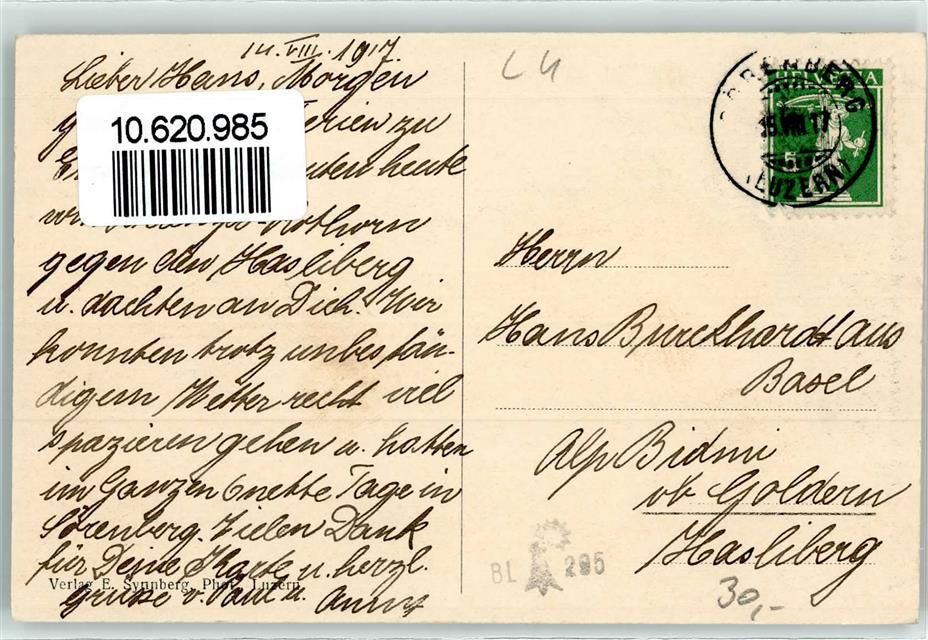 14.VIII.1917
Lieber Hans, Morgen
Ferien zu
heute
Rothorn
gegen den Hasliberg
u. dachten an Dich. Wir
konnten trotz unbestän-
digem Wetter recht viel
spazieren gehen u. hatten
im Ganzen 6 nette Tage in
Sörenberg. Vielen Dank
für Deine Karte u. herzl.
Grüsse v. Paul u. Anny
Verlag E. Synnberg, Phot. Luzern
10.620.985
LU
HELVETIA
SÖRENBERG
15.VIII.17
(LUZERN)
Herrn
Hans Burckhardt aus
Basel
Alp Bidmi
ob Goldern
Hasliberg
BL 295
30,-